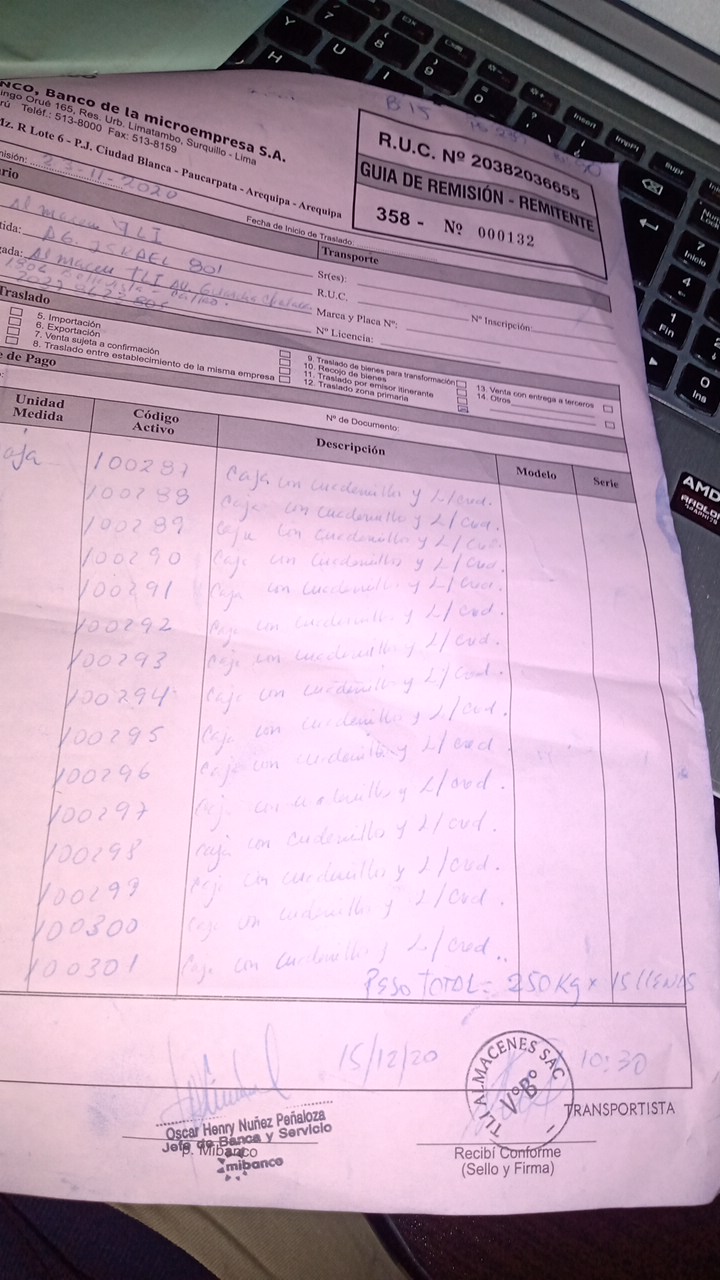 NCO, Banco de la microempresa S.A.
ingo Orué 165, Res. Urb. Limatambo, Surquillo - Lima
rú Teléf.: 513-8000 Fax: 513-8159
Mz. R Lote 6 - P.J. Ciudad Blanca - Paucarpata - Arequipa - Arequipa
misión: 23-11-2020
B 15
R.U.C. Nº 20382036655
GUIA DE REMISIÓN - REMITENTE
358 - Nº 000132
ario
Fecha de Inicio de Traslado:
Almacen TLI
tida: AG. ISRAEL 801
gada: Almacen TLI AV.
Transporte
Sr(es):
R.U.C.
Marca y Placa Nº:
Nº Inscripción:
Nº Licencia:
Traslado
5. Importación
6. Exportación
7. Venta sujeta a confirmación
8. Traslado entre establecimiento de la misma empresa
9. Traslado de bienes para transformación
10. Recojo de bienes
11. Traslado por emisor itinerante
12. Traslado zona primaria
13. Venta con entrega a terceros
14. Otros
e de Pago
Nº de Documento:
Unidad Medida
Código Activo
Descripción
Modelo
Serie
aja 100287 Caja con cuadernillos y L/cred.
100288 Caja con cuadernillos y L/cred.
100289 Caja con cuadernillos y L/cred.
100290 Caja con cuadernillos y L/cred.
100291 Caja con cuadernillos y L/cred.
100292 Caja con cuadernillo y L/cred.
100293 Caja con cuadernillo y L/cred.
100294 Caja con cuadernillo y L/cred.
100295 Caja con cuadernillo y L/cred.
100296 Caja con cuadernillo y L/cred
100297 Caja con y L/cred.
100298 Caja con cuadernillo y L/cred.
100299 Caja con cuadernillo y L/cred.
100300 Caja con cuadernillo y L/cred.
100301 Caja con cuadernillo y L/cred..
PESO TOTAL= 250Kg x 15 LLENAS
15/12/20
10:30
TLI ALMACENES SAC
VºBº
TRANSPORTISTA
Oscar Henry Nuñez Peñaloza
Jefe de Banca y Servicio
p. Mibanco
mibanco
Recibí Conforme
(Sello y Firma)